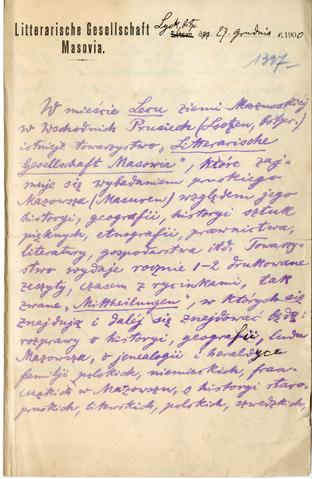 Litterarische Gesellschaft
Masovia.
Lyck, Ostpr.
Lötzen, den 27. Grudnia r. 1900
1397
W mieście Lecu ziemi Mazurskiej
w Wschodnich Prusiech (Loetzen, Ostpr.)
istnieje towarzystwo „Litterarische
Gesellschaft Masovia", które zaj-
muje się wybadaniem pruskiego
Mazowsza (Masuren) względem jego
historyi, geografii, historyi sztuk
pięknych, etnografii, prawnictwa,
literatury, gospodarstwa itd. Towarzy-
stwo wydaje rocznie 1-2 drukowane
zeszyty, czasem z rycinkami, tak
zwane „Mittheilungen", w których się
znajdują i dalej się znajdować będą:
rozprawy o historyi, geografii, ludu
Mazowsza, o jenealogii i heraldyce
familji polskich, niemieckich, fran-
cuzkich w Mazowszu, o historyi staro-
pruskich, litewskich, polskich, szwedzkich,